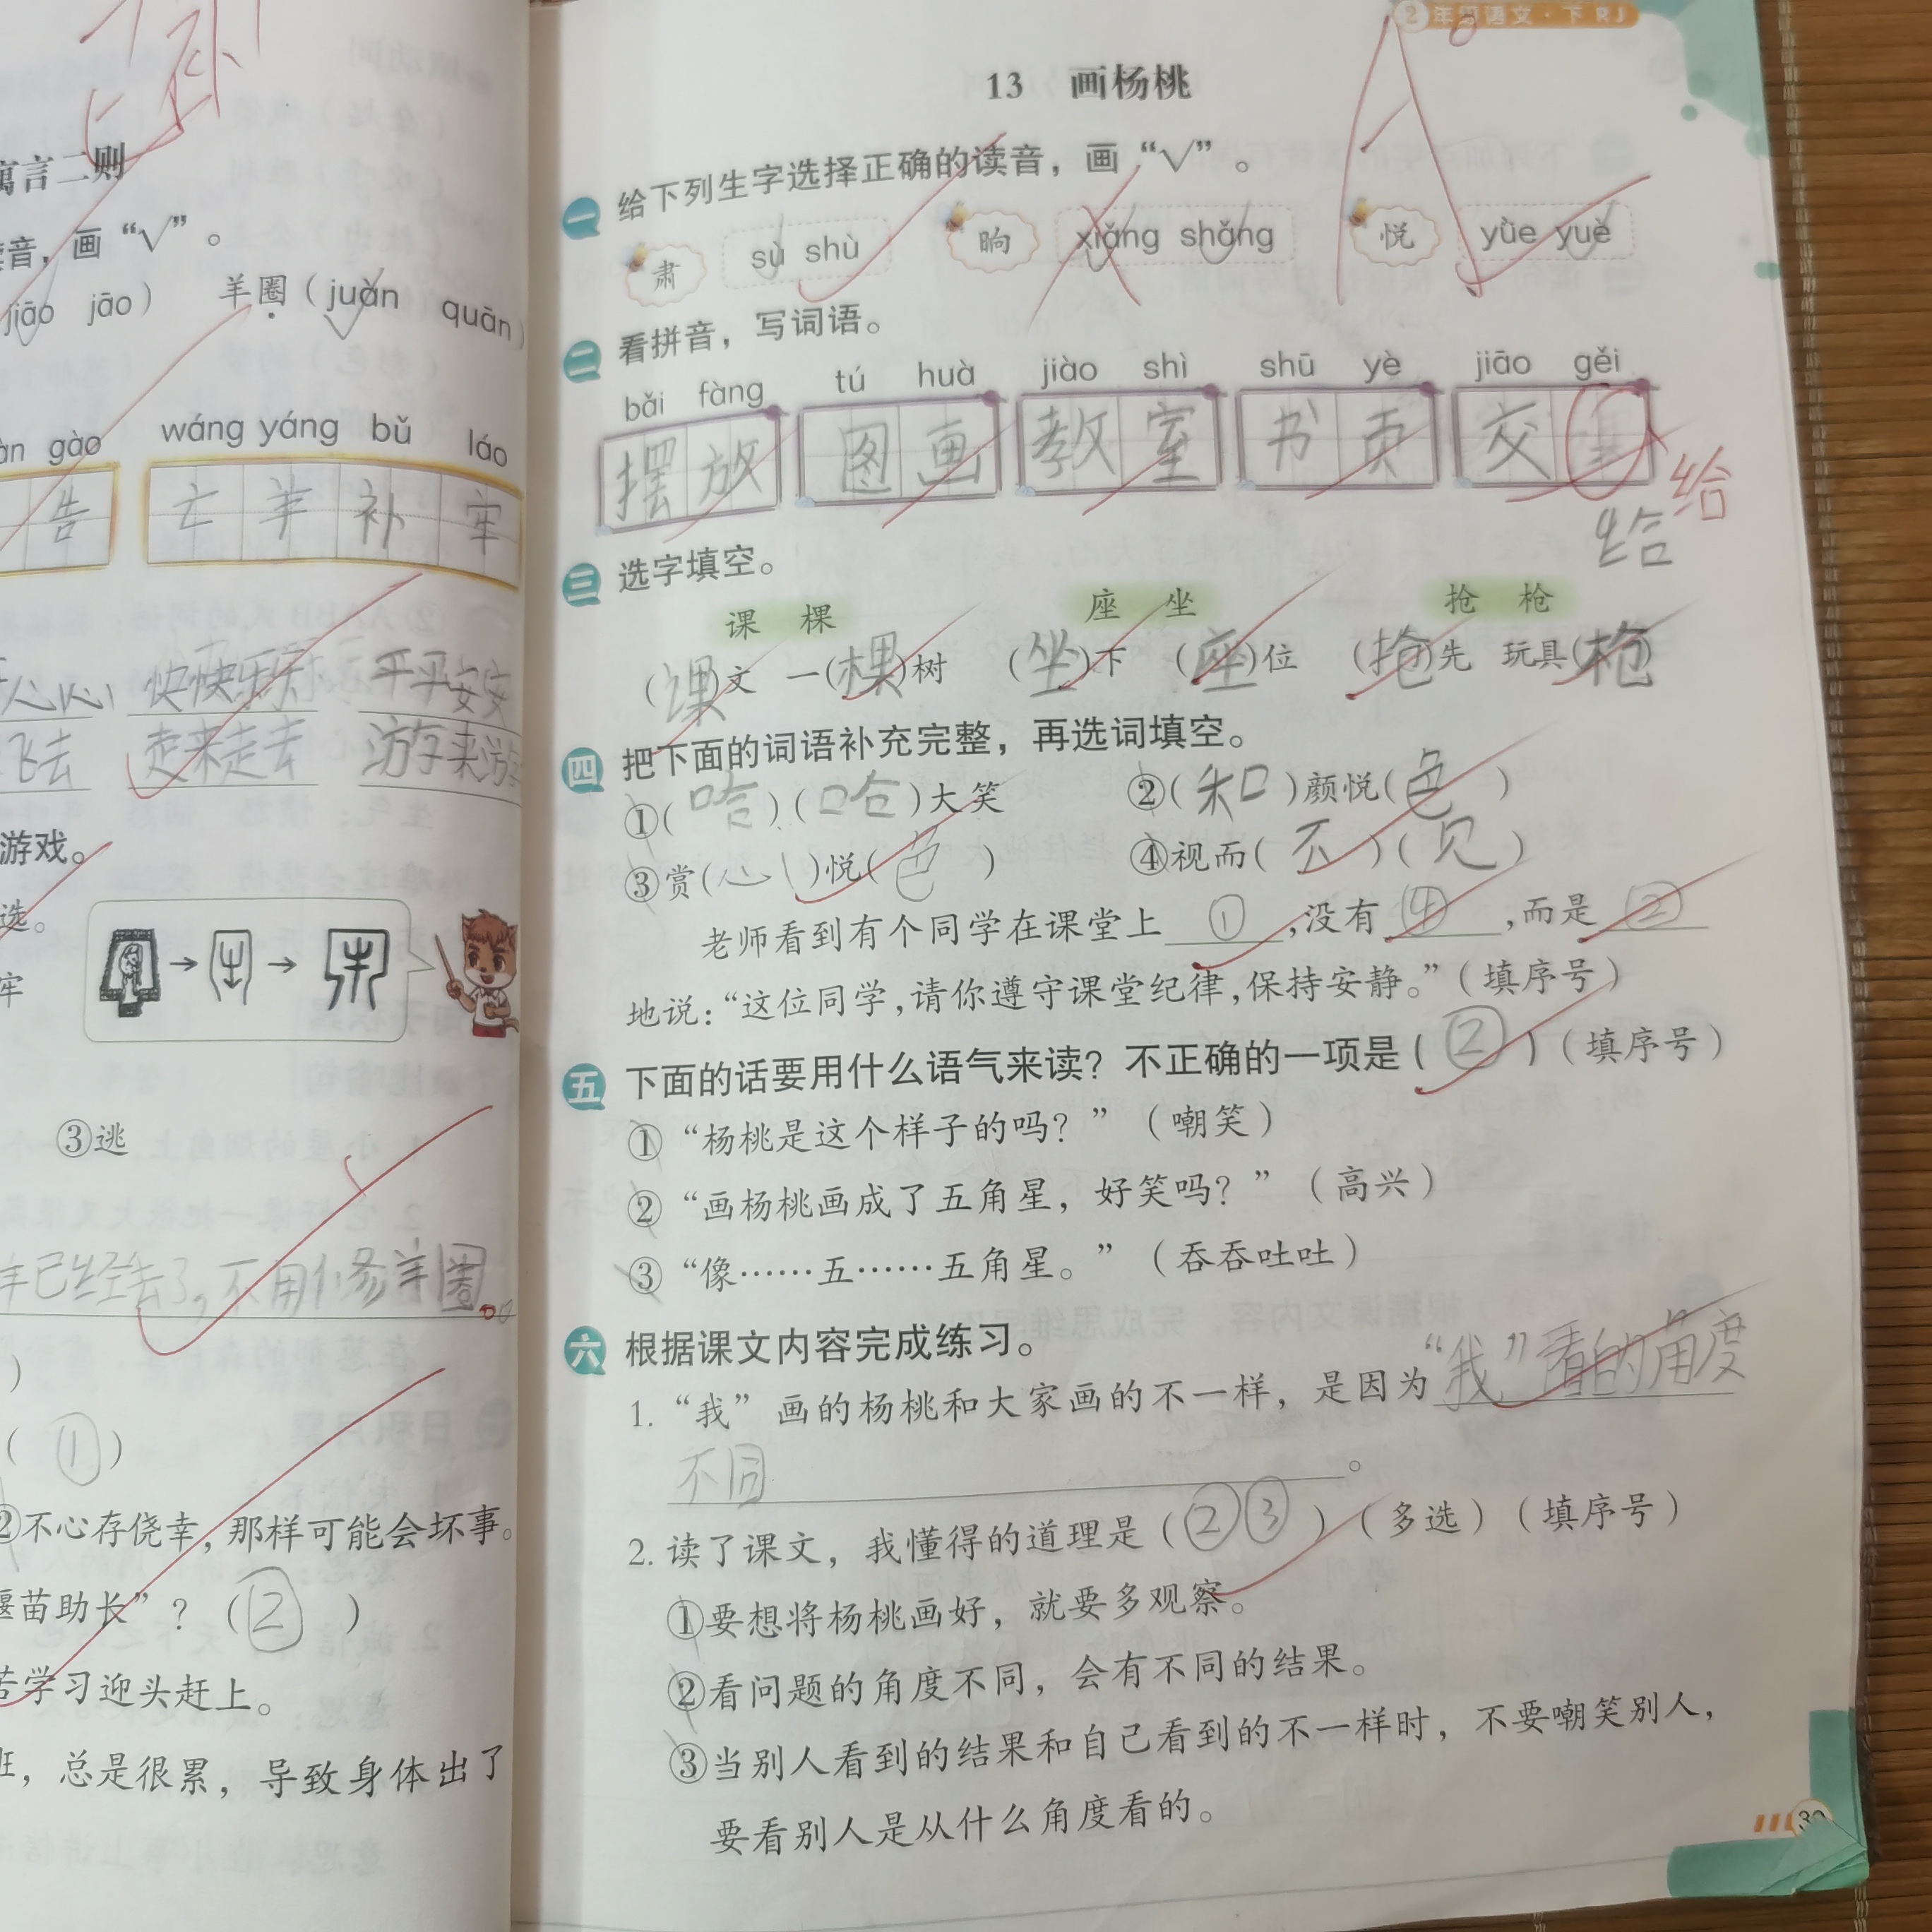 寓言二则
读音，画“√”。
jiāo jāo） 羊圈（juàn quān）
gào wáng yáng bǔ láo
告 亡羊补牢
快快乐乐 平平安安
飞去 走来走去 游来游
游戏。
选。
牢
③逃
羊已经丢了，不用修羊圈。
）
（①）
②不心存侥幸，那样可能会坏事。
揠苗助长”？（②）
苦学习迎头赶上。
班，总是很累，导致身体出了
2年级语文·下 RJ
13 画杨桃
一 给下列生字选择正确的读音，画“√”。
肃 sù shù 晌 xiǎng shǎng 悦 yǜe yuè
二 看拼音，写词语。
bǎi fàng tú huà jiào shì shū yè jiāo gěi
摆放 图画 教室 书页 交
给
给
三 选字填空。
课 棵 座 坐 抢 枪
（课）文 一（棵）树 （坐）下 （座）位 （抢）先 玩具（枪
四 把下面的词语补充完整，再选词填空。
①（哈）（哈）大笑 ②（和）颜悦（色）
③赏（心）悦（色） ④视而（不）（见）
老师看到有个同学在课堂上①，没有④，而是②
地说：“这位同学，请你遵守课堂纪律，保持安静。”（填序号）
五 下面的话要用什么语气来读？不正确的一项是（②）（填序号）
①“杨桃是这个样子的吗？”（嘲笑）
②“画杨桃画成了五角星，好笑吗？”（高兴）
③“像……五……五角星。”（吞吞吐吐）
六 根据课文内容完成练习。
1.“我”画的杨桃和大家画的不一样，是因为“我”看的角度
不同。
2.读了课文，我懂得的道理是（②③）（多选）（填序号）
①要想将杨桃画好，就要多观察。
②看问题的角度不同，会有不同的结果。
③当别人看到的结果和自己看到的不一样时，不要嘲笑别人，
要看别人是从什么角度看的。